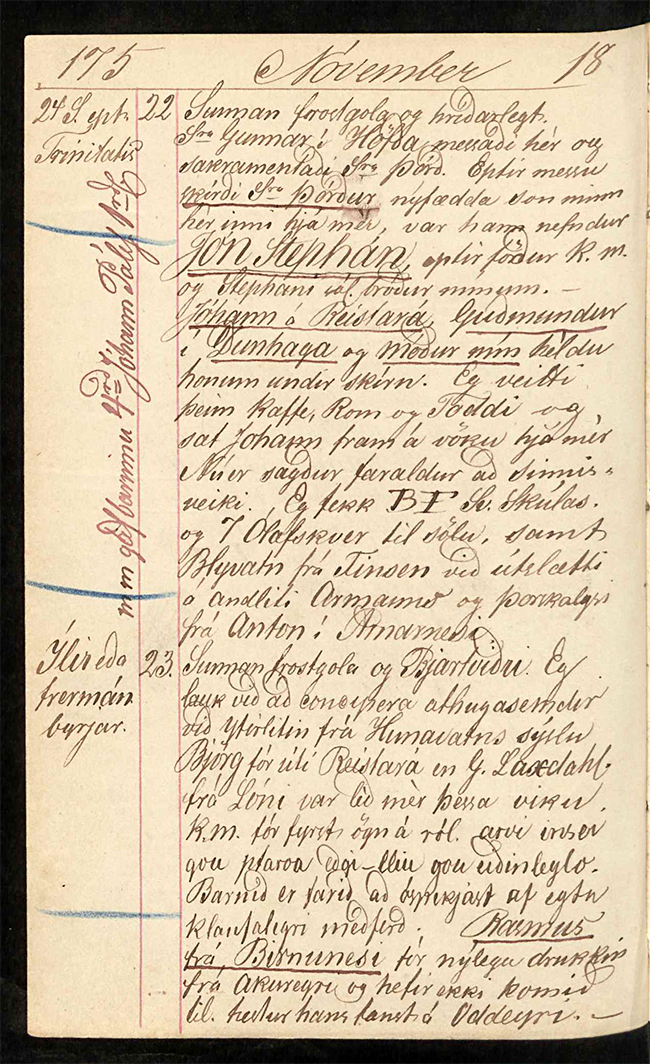 175 November 18
24 S. ept. 22 Sunnan frostgola og hríðarlegt.
Trinitatis Sra Gunnar í Höfða messaði hér og
sakramentaði Sra Þórð. Eptir messu
skírði Sra Þórður nýfædda son minn
hér inni hjá mér, var hann nefndur
Jón Stephán, eptir föður k. m.
og Stepháni sál. bróður mínum. –
Jóhann á Reistará, Guðmundur
í Dunhaga og móður mín héldu
honum undir skírn. Eg veitti
þeim Kaffe, Rom og Toddi og
sat Jóhann fram á vöku hjá mér
Nú er sagður faraldur að sinnis-
veiki. Eg fekk BF Sv. Skúlas.
og 7 Olafskver til sölu, samt
Blyvatn frá Finsen við útslætti
á andliti Armanns og þorskalysi
frá Anton í Arnarnesi.
m m gaf barninu 4rd, Jóhann Pálsf 1rd
Ýlir eða 23. Sunnan frostgola og Bjartviðri. Eg
frermán. lauk við að concipera athugasemdir
byrjar. við Ytirlitin frá Hunavatns sýslu
Björg fór útí Reistará en G. Laxdahl
frá Lóni var léð mér þessa viku.
K.m. fór fyrst ögn á ról.
Barnið er farið að
klaufalegri meðferð. Rasmus
frá Birnunesi fór nýlega drukkin
frá Akureyri og hefir ekki komið
til. hestur hans fanst á Oddeyri. –